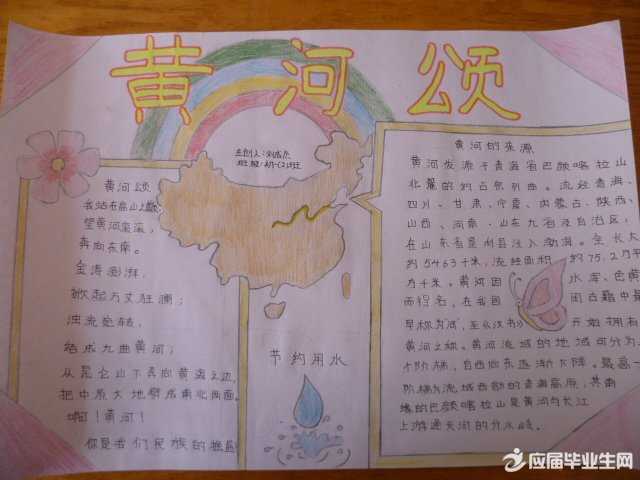 黄河颂
主创人:刘
班级:初一(2)班
黄河颂
我站在高山之巅
望黄河滚滚,
奔向东南。
金涛澎湃,
掀起万丈狂澜;
浊流宛转,
结成九曲黄河;
从昆仑山下奔向黄海之边,
把中原大地劈成南北两面。
啊!黄河!
你是我们民族的摇篮
节约用水
黄河的来源
黄河发源于青海省巴颜喀拉山
北麓的约古宗列曲。流经青海、
四川、甘肃、宁夏、内蒙古、陕西、
山西、河南、山东九省及自治区,
在山东省垦利县注入渤海。全长大
约5463千米,流经面积约75.2万平
方千米。黄河因水浑、色黄
而得名,在我国古籍中最
早称为"河",至《汉书》开始拥有
黄河之称。黄河流域的地域可分为
个阶梯,自西向东逐渐下降。最高一
阶梯为流域西部的青海高原,其南
缘的巴颜喀拉山是黄河与长江
上游通天河的分水岭。
应届毕业生网